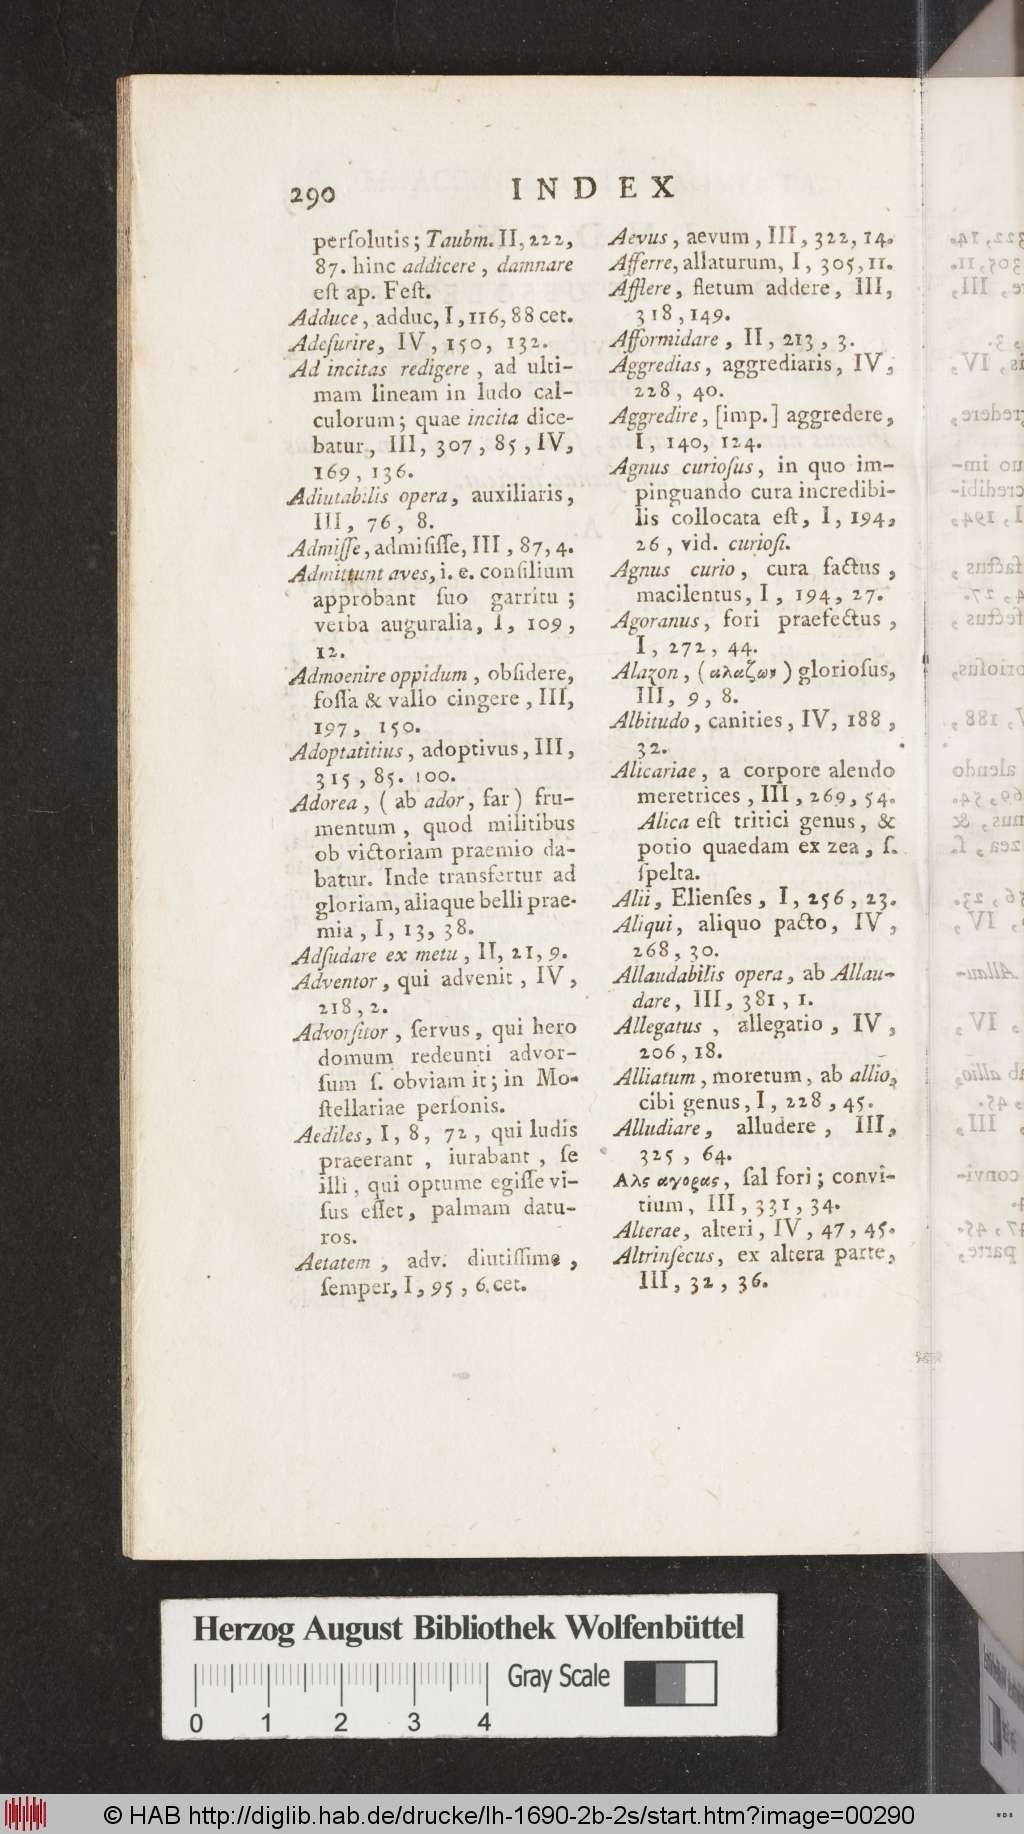 290 INDEX
perſolutis; Taubm. II, 222,
87. hinc addicere, damnare
eſt ap. Feſt.
Adduce, adduc, I, 116, 88 cet.
Adeſurire, IV, 150, 132.
Ad incitas redigere, ad ulti-
mam lineam in ludo cal-
culorum; quae incita dice-
batur, III, 307, 85, IV,
169, 136.
Adiutabilis opera, auxiliaris,
III, 76, 8.
Admiſſe, admiſiſſe, III, 87, 4.
Admittunt aves, i. e. conſilium
approbant ſuo garritu;
verba auguralia, I, 109,
12.
Admoenire oppidum, obſidere,
foſſa & vallo cingere, III,
197, 150.
Adoptatitius, adoptivus, III,
315, 85. 100.
Adorea, (ab ador, far) fru-
mentum, quod militibus
ob victoriam praemio da-
batur. Inde transfertur ad
gloriam, aliaque belli prae-
mia, I, 13, 38.
Adſudare ex metu, II, 21, 9.
Adventor, qui advenit, IV,
218, 2.
Advorſitor, ſervus, qui hero
domum redeunti advor-
ſum ſ. obviam it; in Mo-
ſtellariae perſonis.
Aediles, I, 8, 72, qui ludis
praeerant, iurabant, ſe
illi, qui optume egiſſe vi-
ſus eſſet, palmam datu-
ros.
Aetatem, adv. diutiſſime,
ſemper, I, 95, 6. cet.
Aevus, aevum, III, 322, 14.
Afferre, allaturum, I, 305, 11.
Afflere, fletum addere, III,
318, 149.
Afformidare, II, 213, 3.
Aggredias, aggrediaris, IV,
228, 40.
Aggredire, [imp.] aggredere,
I, 140, 124.
Agnus curioſus, in quo im-
pinguando cura incredibi-
lis collocata eſt, I, 194,
26, vid. curioſi.
Agnus curio, cura factus,
macilentus, I, 194, 27.
Agoranus, fori praefectus,
I, 272, 44.
Alazon, (αλαζων) glorioſus,
III, 9, 8.
Albitudo, canities, IV, 188,
32.
Alicariae, a corpore alendo
meretrices, III, 269, 54.
Alica eſt tritici genus, &
potio quaedam ex zea, ſ.
ſpelta.
Alii, Elienſes, I, 256, 23.
Aliqui, aliquo pacto, IV,
268, 30.
Allaudabilis opera, ab Allau-
dare, III, 381, 1.
Allegatus, allegatio, IV,
206, 18.
Alliatum, moretum, ab allio,
cibi genus, I, 228, 45.
Alludiare, alludere, III,
325, 64.
Αλς αγορας, ſal fori; convi-
tium, III, 331, 34.
Alterae, alteri, IV, 47, 45.
Altrinſecus, ex altera parte,
III, 32, 36.
Herzog August Bibliothek Wolfenbüttel
Gray Scale
0 1 2 3 4
© HAB http://diglib.hab.de/drucke/lh-1690-2b-2s/start.htm?image=00290